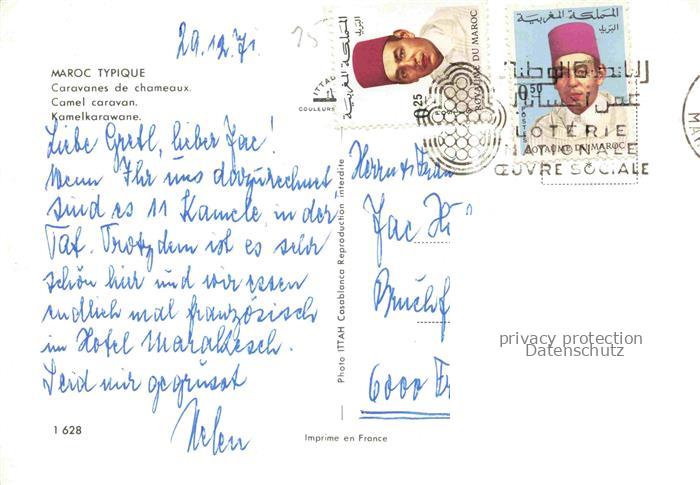 29.12.71
25
MAROC TYPIQUE
Caravanes de chameaux.
Camel caravan.
Kamelkarawane.
Liebe Gretl, lieber Jac!
Wenn Ihr uns dazurechnet
sind es 11 Kamele in der
Tat. Trotzdem ist es sehr
schön hier und wir essen
endlich mal französisch
im Hotel Marakesch.
Seid mir gegrüsst
Helen
1 628
ITTAH
COULEURS
Photo ITTAH Casablanca Reproduction interdite
Imprimé en France
المملكة المغربية
البريد
0.25
POSTES
ROYAUME DU MAROC
المملكة المغربية
البريد
0.50
POSTES
ROYAUME DU MAROC
اليانصيب الوطني
LOTERIE
NATIONALE
ŒUVRE SOCIALE
Herrn u Frau
Jac
6000
privacy protection
Datenschutz